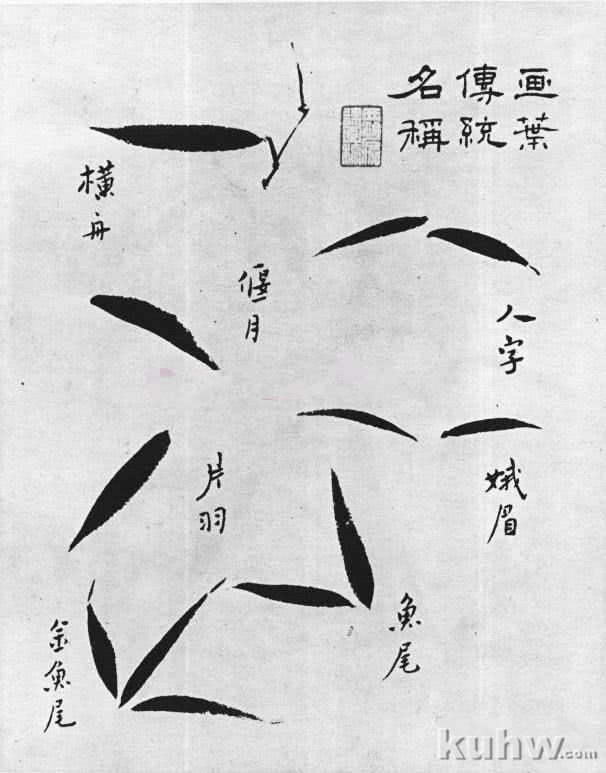 画葉
傳統
名稱
橫舟
偃月
人字
娥眉
片羽
魚尾
金魚尾
kuhw.com